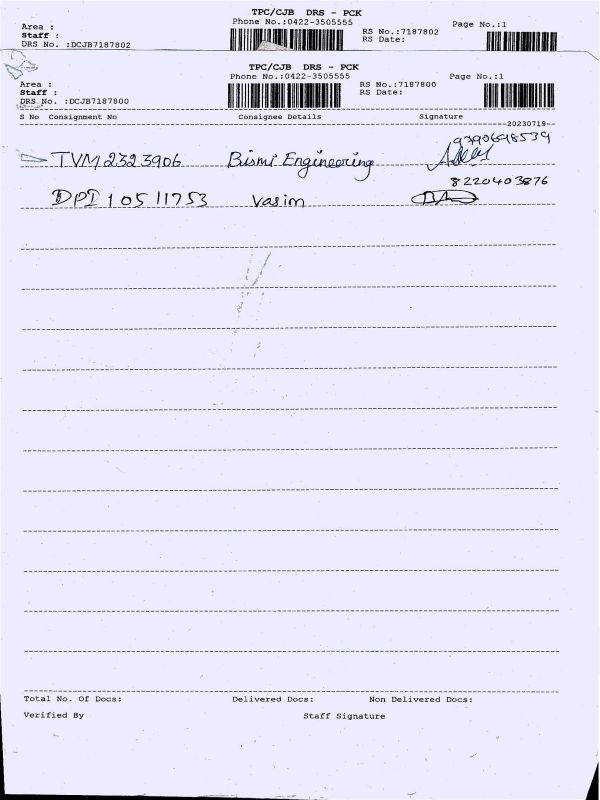 TPC/CJB DRS - PCK
Phone No.:0422-3505555 Page No.:1
Area :
Staff : RS No.:7187802
DRS No. :DCJB7187802 RS Date:
TPC/CJB DRS - PCK
Phone No.:0422-3505555 Page No.:1
Area : RS No.:7187800
Staff : RS Date:
DRS No. :DCJB7187800
S No Consignment No Consignee Details Signature
20230719--
9790698539
TVM2323906 Bismi Engineering
8220403876
DPI 10511753 Vasim
Total No. Of Docs: Delivered Docs: Non Delivered Docs:
Verified By Staff Signature